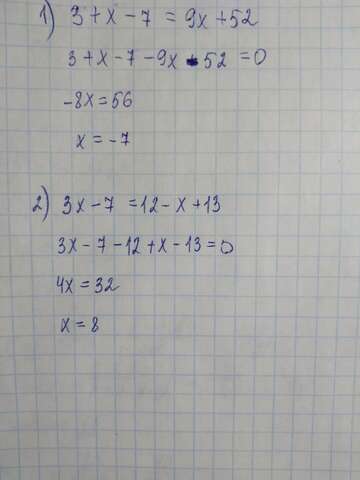 1) 3 + x - 7 = 9x + 52
3 + x - 7 - 9x - 52 = 0
-8x = 56
x = -7
2) 3x - 7 = 12 - x + 13
3x - 7 - 12 + x - 13 = 0
4x = 32
x = 8